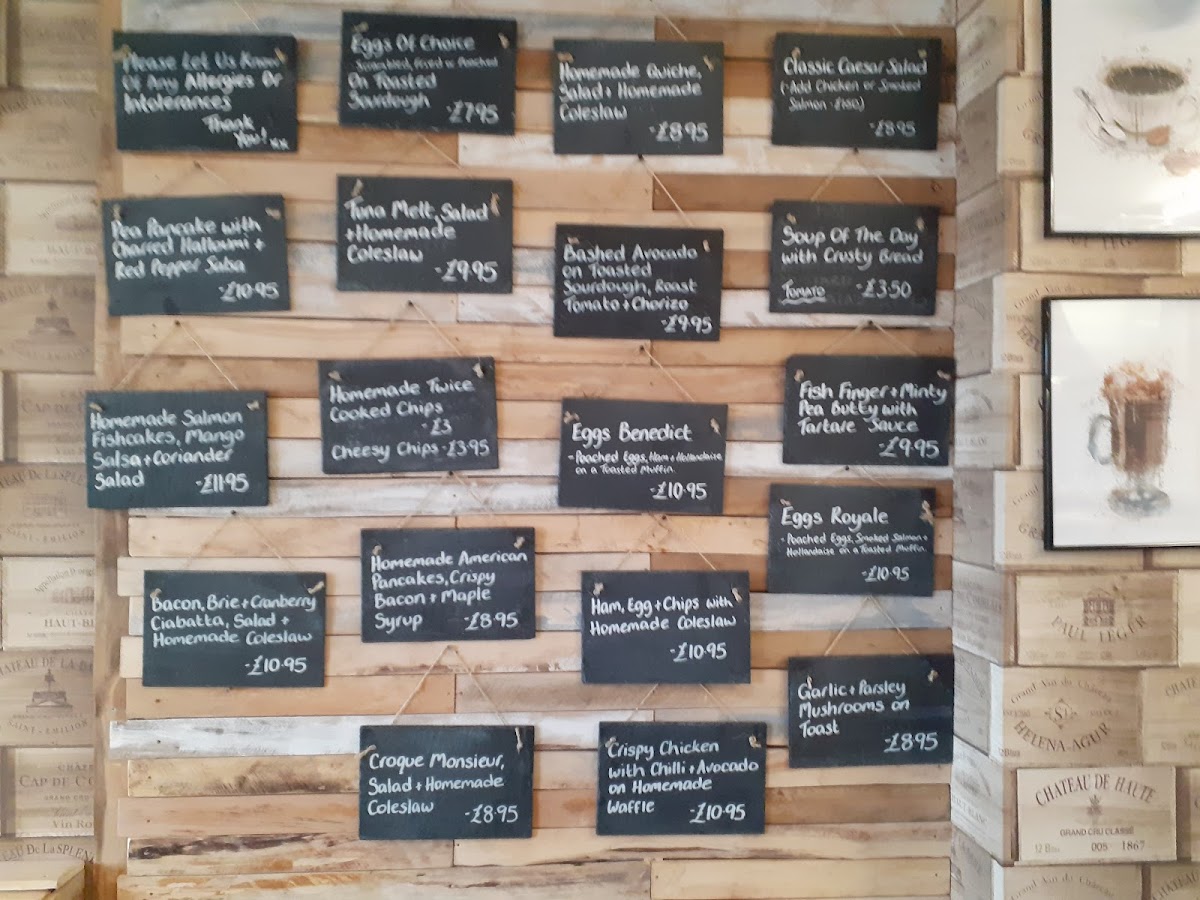 Please Let Us Know
Of Any Allergies Or
Intolerances
Thank
You! xx
Eggs Of Choice
- Scrambled, Fried or Poached
On Toasted
Sourdough
-£7.95
Homemade Quiche,
Salad + Homemade
Coleslaw
-£8.95
Classic Caesar Salad
(-Add Chicken or Smoked
Salmon -
-£8.95
Pea Pancake with
Charred Halloumi +
Red Pepper Salsa
-£10.95
Tuna Melt, Salad
+ Homemade
Coleslaw
-£9.95
Bashed Avocado
on Toasted
Sourdough, Roast
Tomato + Chorizo
-£9.95
Soup Of The Day
with Crusty Bread
Tomato -£3.50
Homemade Salmon
Fishcakes, Mango
Salsa + Coriander
Salad -£11.95
Homemade Twice
Cooked Chips
-£3
Cheesy Chips -£3.95
Eggs Benedict
- Poached Eggs, Ham + Hollandaise
on a Toasted Muffin
-£10.95
Fish Finger + Minty
Pea Butty with
Tartare Sauce
-£9.95
Eggs Royale
- Poached Eggs, Smoked Salmon +
Hollandaise on a Toasted Muffin
-£10.95
Bacon, Brie + Cranberry
Ciabatta, Salad +
Homemade Coleslaw
-£10.95
Homemade American
Pancakes, Crispy
Bacon + Maple
Syrup -£8.95
Ham, Egg + Chips with
Homemade Coleslaw
-£10.95
Garlic + Parsley
Mushrooms on
Toast
-£8.95
Croque Monsieur,
Salad + Homemade
Coleslaw
-£8.95
Crispy Chicken
with Chilli + Avocado
on Homemade
Waffle -£10.95
PAUL LEGER
Grand Vin du Château
HELENA-AGUR
CHATEAU DE HAUTE
GRAND CRU CLASSÉ
12 Btles 005 1867